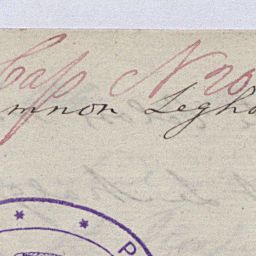 Cap N 20
mnon Legho
P